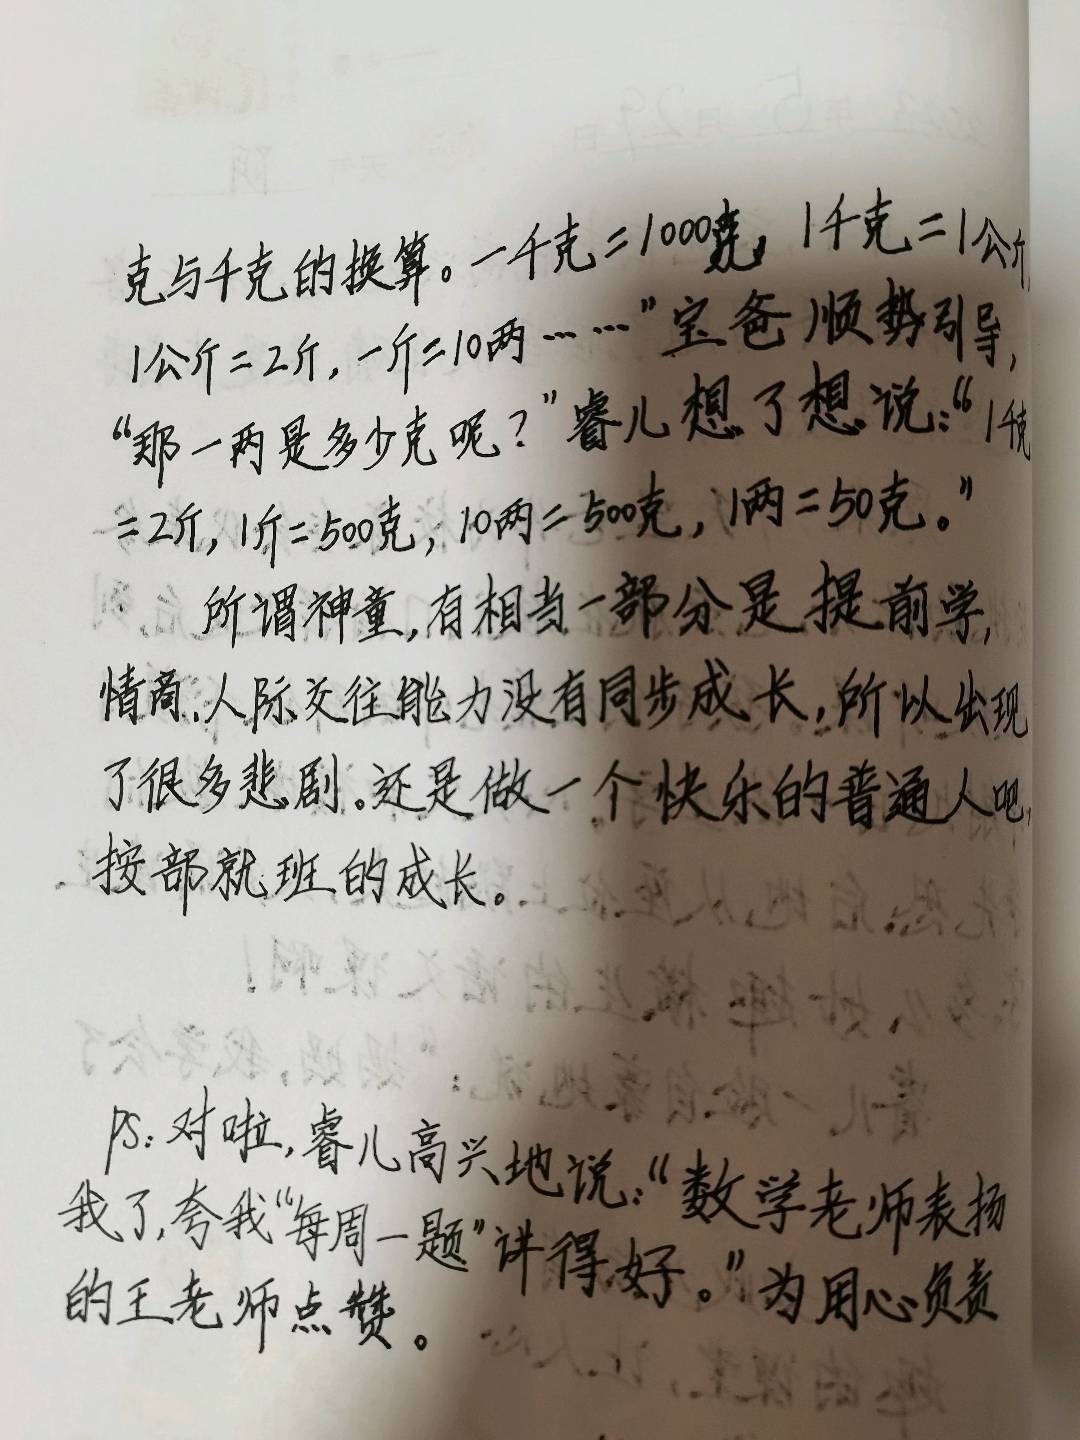 克与千克的换算。一千克=1000克，1千克=1公斤，
1公斤=2斤，一斤=10两……”宝爸顺势引导，
“那一两是多少克呢？”睿儿想了想说：“1千克
=2斤，1斤=500克，10两=500克，1两=50克。”
所谓神童，有相当一部分是提前学，
情商、人际交往能力没有同步成长，所以出现
了很多悲剧。还是做一个快乐的普通人吧，
按部就班的成长。
PS：对啦，睿儿高兴地说：“数学老师表扬
我了，夸我“每周一题”讲得好。”为用心负责
的王老师点赞。